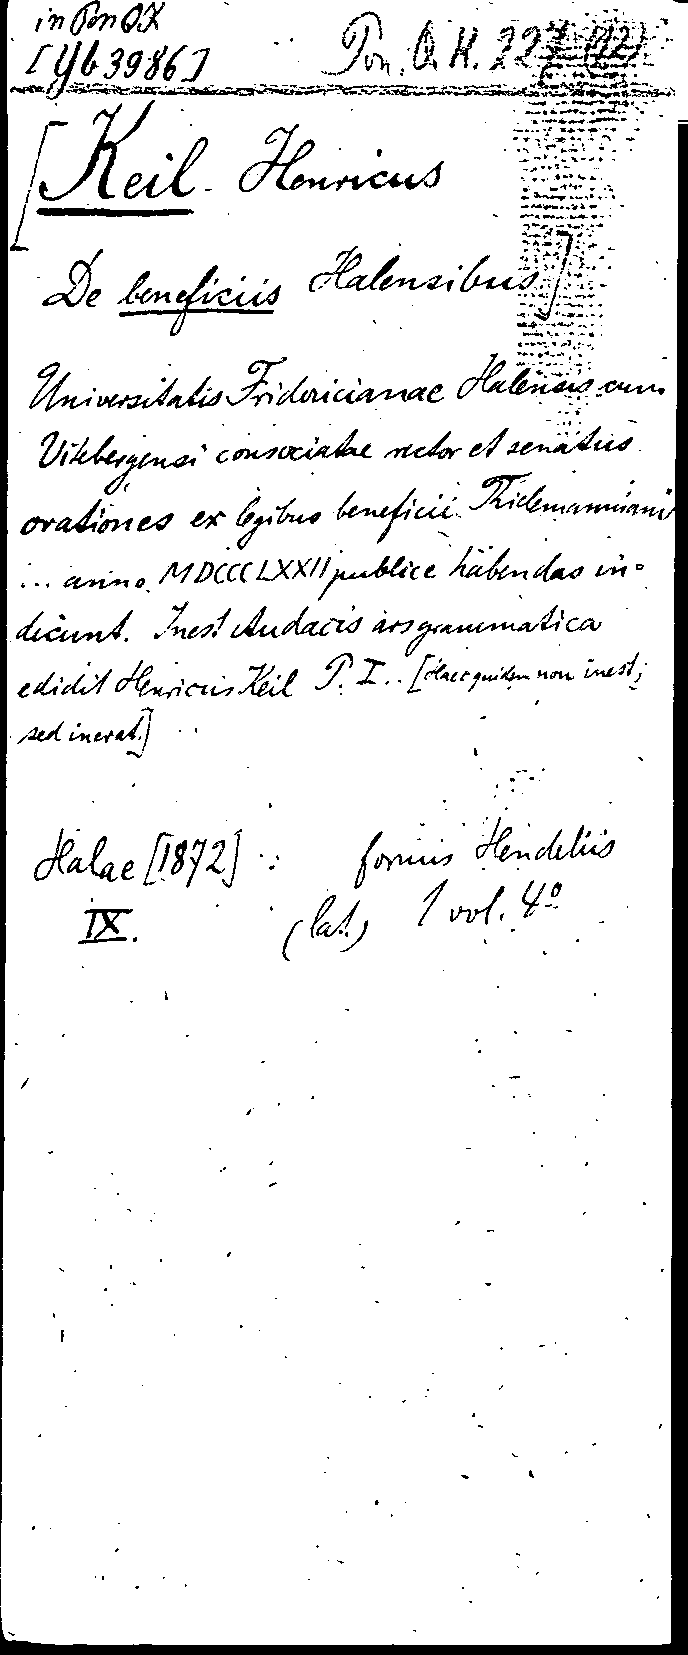 in Pon QK
[Yb 3986] Pon. Qu K. 227 (12)
[Keil. Henricus
De beneficiis Halensibus]
Universitatis Fridericianae Halensis cum
Vitebergensi consociatae rector et senatus
orationes ex legibus beneficii Thielemanniani
... anno MDCCCLXXII publice habendas in-
dicunt. Inest Audacis ars grammatica
edidit Henricus Keil P. I.. [Haec quidem non inest;
sed inerat.]
Halae [1872] : formis Hendeliis
IX. (lat.) 1 vol. 4º